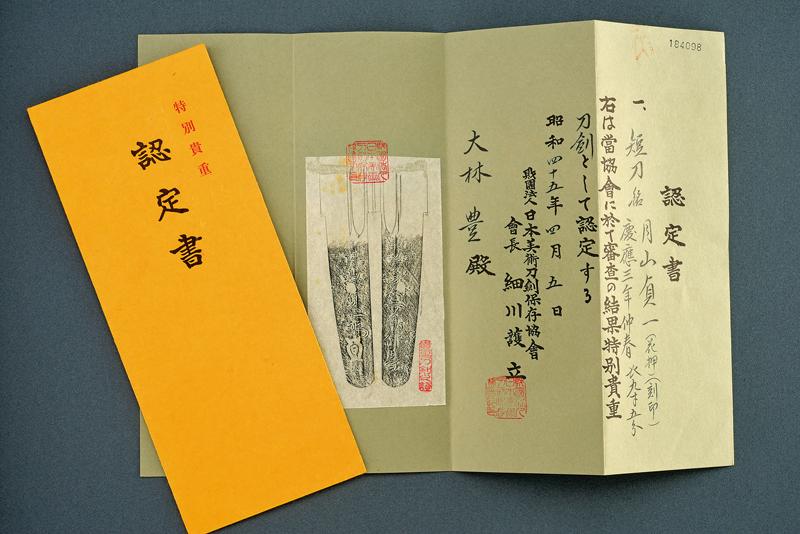 184098
認定書
一、短刀 銘 月山貞一(花押)(刻印)
慶應三年仲春 長九寸五分
右は當協會に於て審査の結果特別貴重
刀劍として認定する
昭和四十五年四月五日
財團法人日本美術刀劍保存協會
會長 細川護立
大林豊殿
特別貴重
認定書